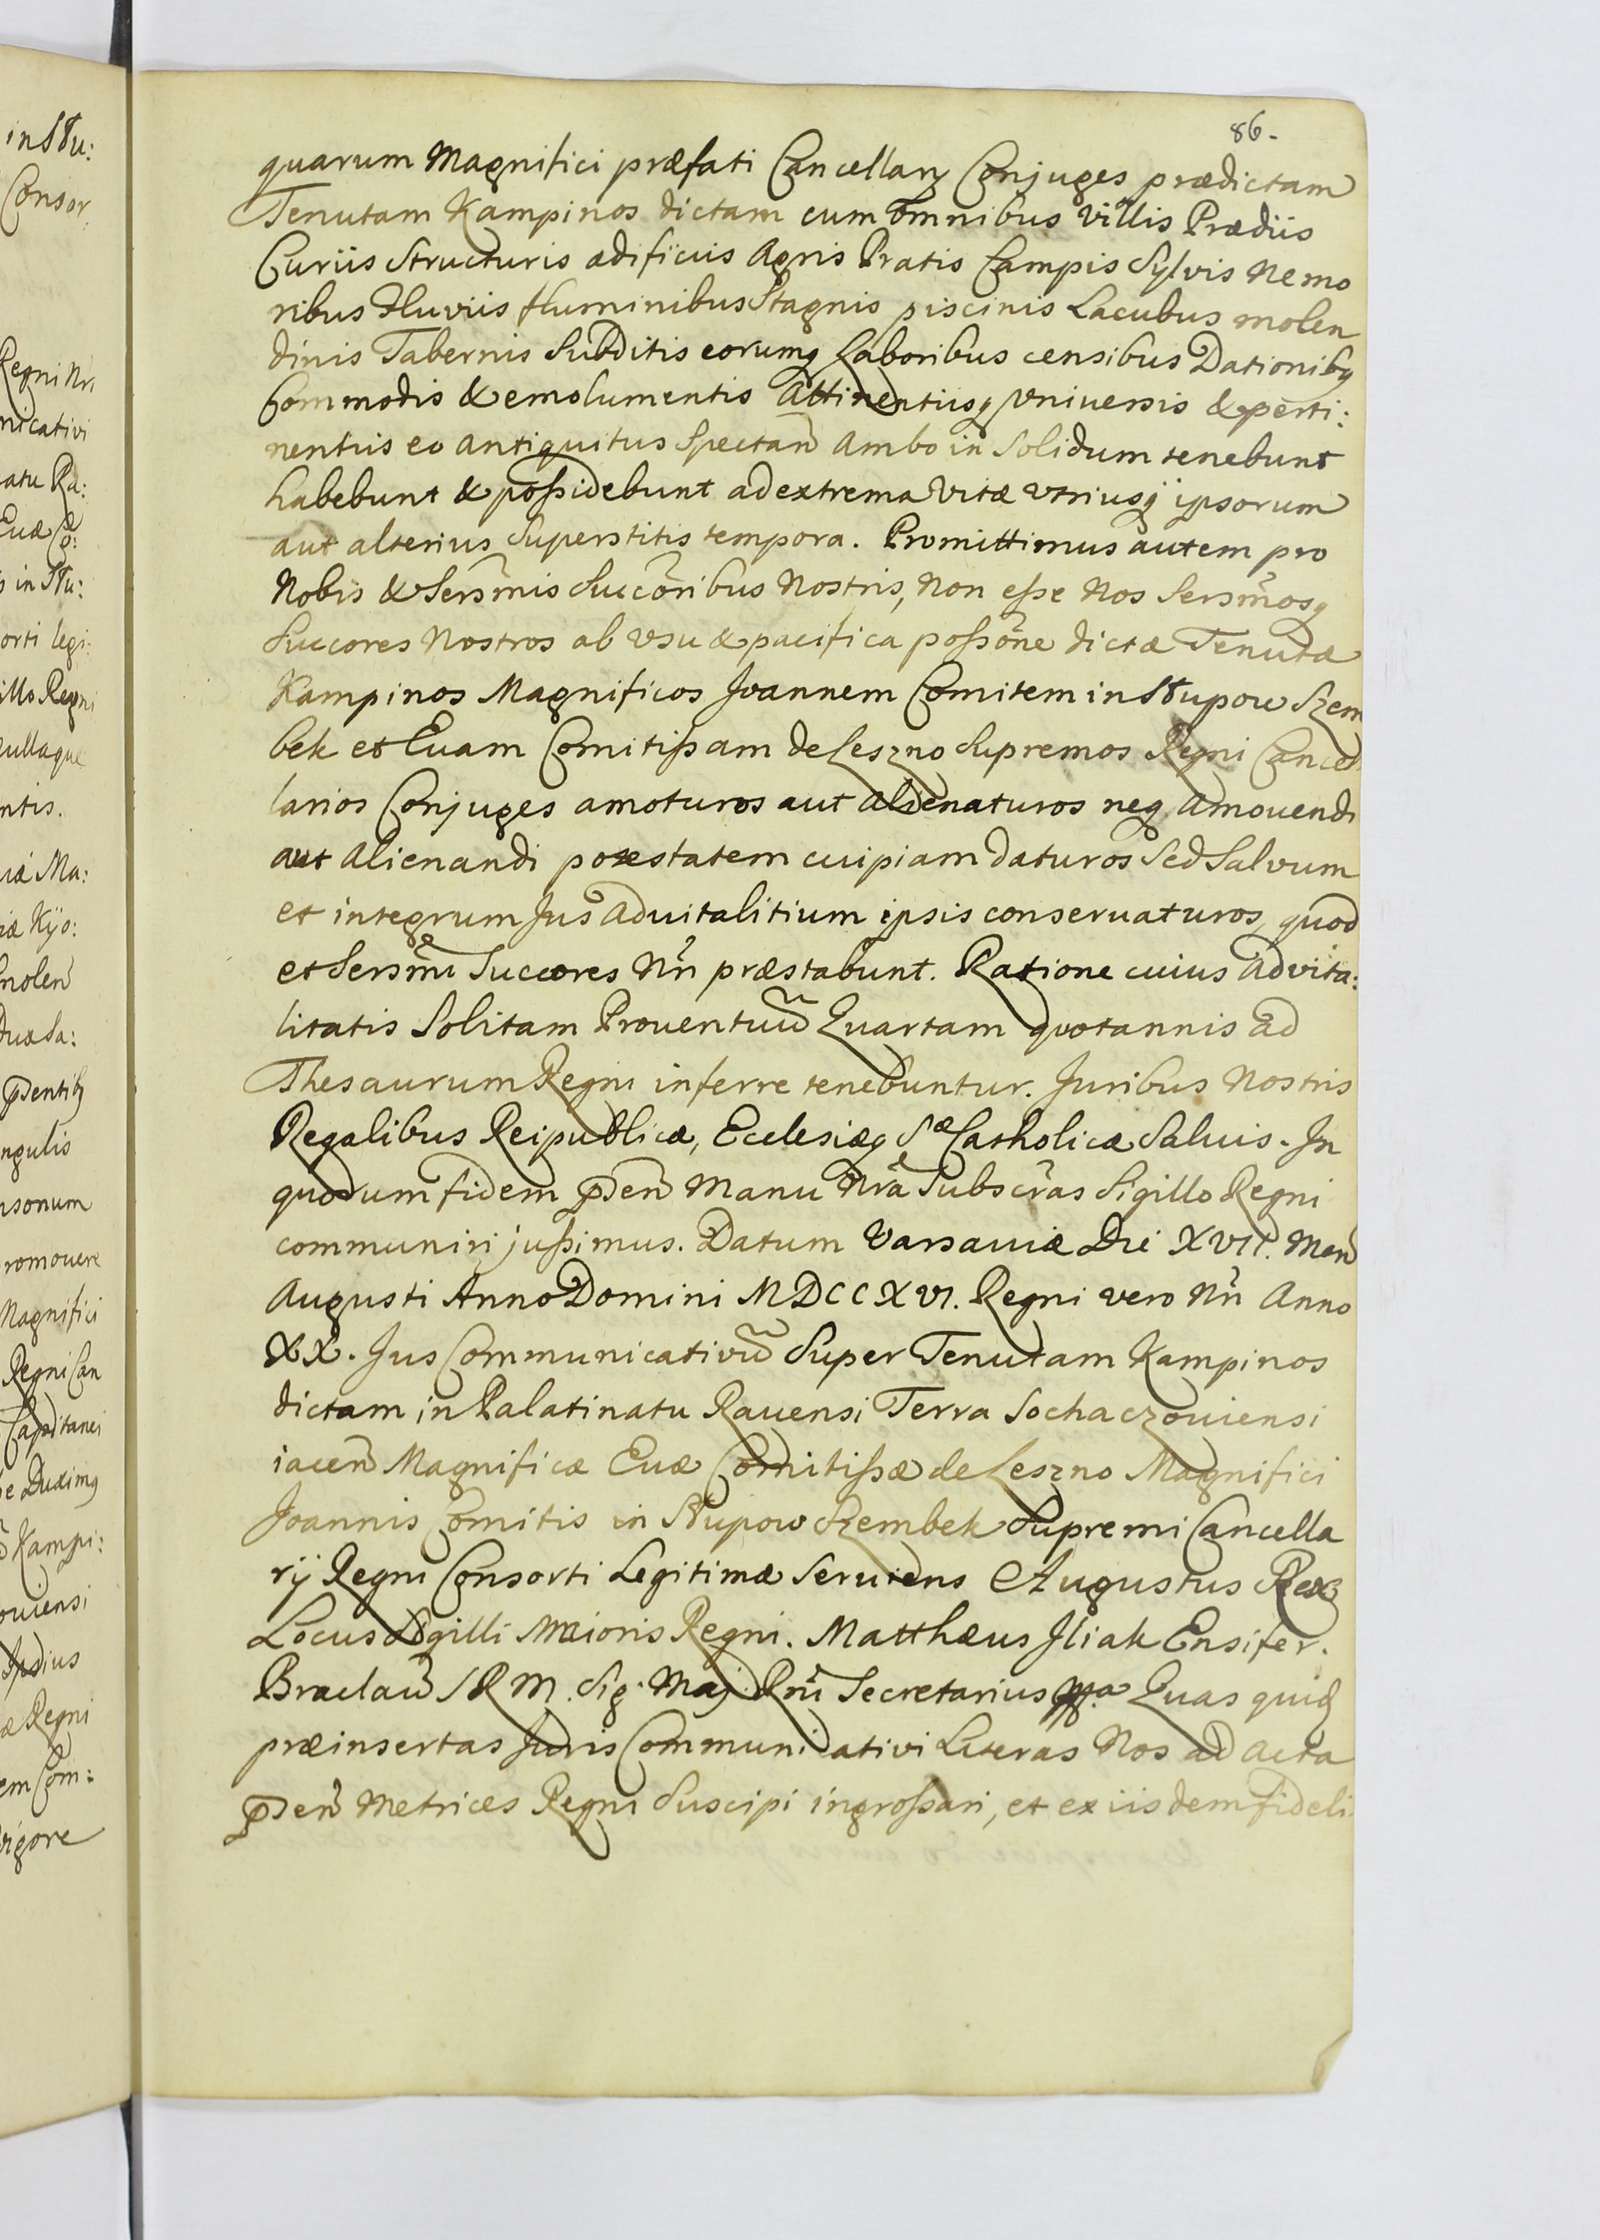 86.
quarum Magnifici præfati Cancellarÿ Conjuges prædictam
Tenutam Kampinos dictam cum omnibus villis Prædiis
Curiis Structuris ædificiis Agris Pratis Campis Sylvis Nemo
ribus Fluviis fluminibus Stagnis piscinis Lacubus molen
dinis Tabernis Subditis eorumq Laboribus censibus Dationibq
Commodis & emolumentis Attinentiisq Vniuersis & perti:
nentiis eo antiquitus Spectan̄ Ambo in Solidum tenebunt
habebunt & poſsidebunt ad extrema Vitæ vtriusq ipsorum
aut alterius Superstitis tempora. Promittimus autem pro
Nobis & Serm̄is Succor̄ibus Nostris, Non eſse Nos Serm̄osq
Succores Nostros ab vsu & pacifica poſsōne dictæ Tenutæ
Kampinos Magnificos Joannem Comitem in Słupow Szem
bek et Euam Comitiſsam de Leszno Supremos Regni Cancel
larios Conjuges amoturos aut alienaturos neq Amouendi
aut Alienandi potestatem cuipiam daturos Sed Salvum
et integrum Jus aduitalitium ipsis conseruaturos, quod
et Serm̄i Succores Nr̄i præstabunt. Ratione cuius advita:
litatis Solitam Prouentuū Quartam quotannis ad
Thesaurum Regni inferre tenebuntur. Juribus Nostris
Regalibus Reipublicæ, Ecclesiæq Sæ Catholicæ Saluis. In
quorum fidem p̄sen̄ Manu Nr̄a Subscr̄as Sigillo Regni
communiri juſsimus. Datum Varsauiæ Die XVII. Men̄
Augusti Anno Domini MDCCXVI. Regni vero Nr̄i Anno
XX. Jus Communicativū Super Tenutam Kampinos
dictam in Palatinatu Rauensi Terra Sochaczouiensi
iacen̄ Magnificæ Euæ Comitiſsæ de Leszno Magnifici
Joannis Comitis in Słupow Szembek Supremi Cancella
rij Regni Consorti Legitimæ Seruiens Augustus Rex
Locus Sigilli Maioris Regni. Matthæus Iliak Ensifer.
Braclaū S R M. Sig. Maj. Rn̄i Secretarius mpa Quas quidē
præinsertas Juris Communicativi Literas Nos ad Acta
p̄sen̄ Metrices Regni Suscipi ingroſsari, et ex iisdem fideli